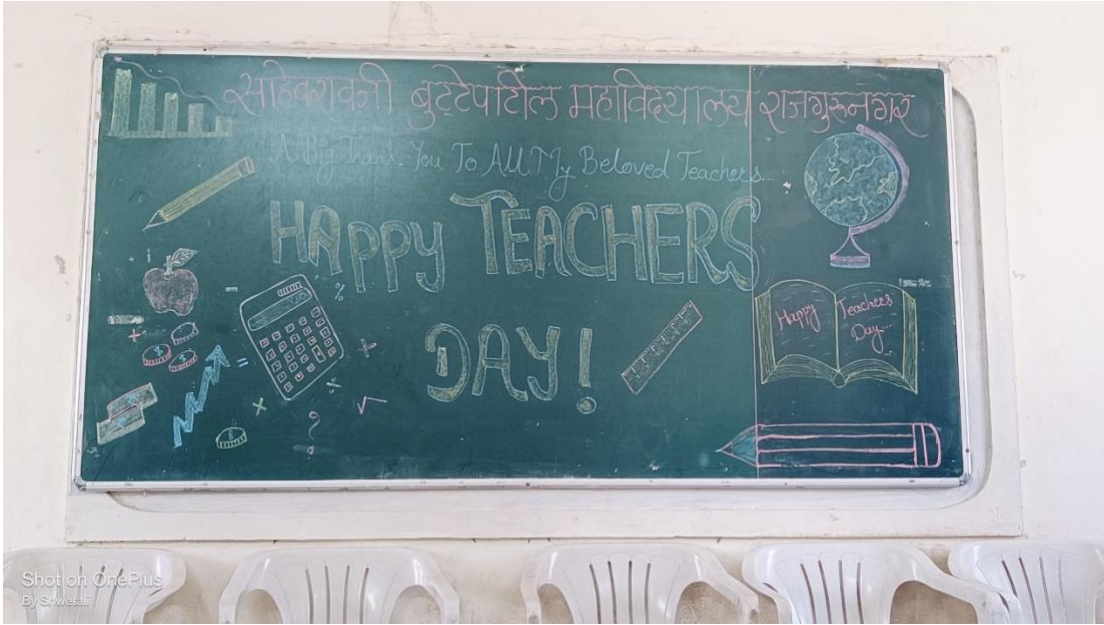 साहेबरावजी बुट्टेपाटील महाविद्यालय राजगुरूनगर
A Big Thank You To All My Beloved Teachers...
HAPPY TEACHERS
DAY!
Happy Teachers
Day...
Shot on OnePlus
By Shwetali